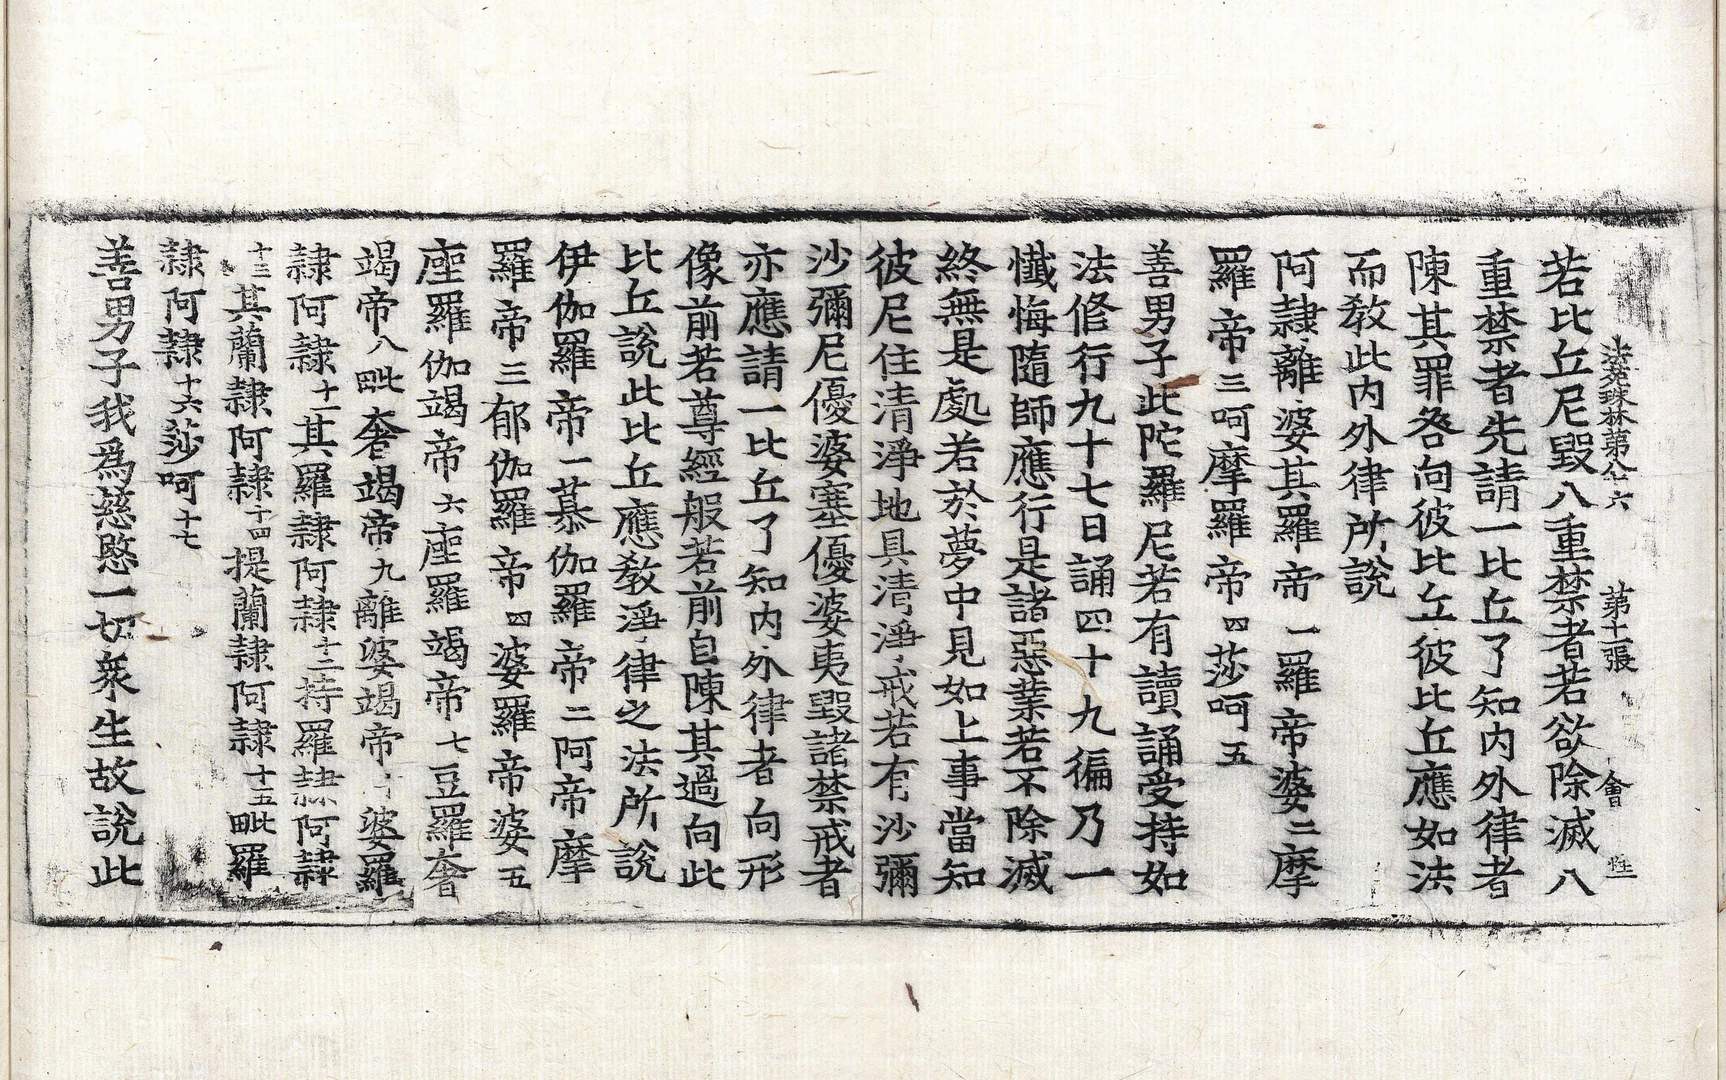 法苑珠林第八十六 第十一張 會 性
若比丘尼毀八重禁者若欲除滅八
重禁者先請一比丘了知內外律者
陳其罪咎向彼比丘彼比丘應如法
而教此內外律所說
阿隷離婆其羅帝一羅帝婆二摩
羅帝三呵摩羅帝四莎呵五
善男子此陀羅尼若有讀誦受持如
法修行九十七日誦四十九徧乃一
懺悔隨師應行是諸惡業若不除滅
終無是處若於夢中見如上事當知
彼尼住清淨地具清淨戒若有沙彌
沙彌尼優婆塞優婆夷毀諸禁戒者
亦應請一比丘了知內外律者向形
像前若尊經般若前自陳其過向此
比丘說此比丘應教淨律之法所說
伊伽羅帝一慕伽羅帝二阿帝摩
羅帝三郁伽羅帝四婆羅帝婆五
座羅伽竭帝六座羅竭帝七豆羅奢
竭帝八毗奢竭帝九離婆竭帝十婆羅
隷阿隷十一其羅隷阿隷十二持羅隷阿隷
十三其蘭隷阿隷十四提蘭隷阿隷十五毗羅
隷阿隷十六莎呵十七
善男子我為慈愍一切衆生故說此